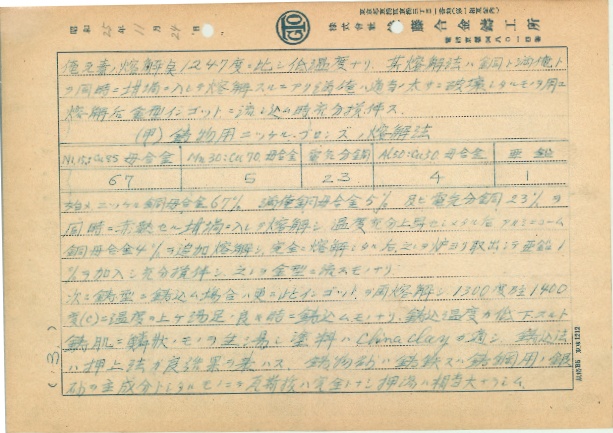 昭和 25年 11月 24日
GTO
株式会社 藤合金鑄工所
度元素ノ熔解点1247度ニ比シ低温度ナリ 其熔解法ハ銅ト満俺ト
ヲ同時ニ坩堝ニ入レテ熔解スルニアリ満俺ハ適当ノ太サニ破壊シタルモノヲ用ユ
熔解后金型インゴットニ流シ込ム時充分撹伴ス
(甲) 鋳物用ニッケルブロンズノ熔解法
Ni15:Cu85母合金 Mn30:Cu70母合金 電気分銅 Al50:Cu50母合金 亜鉛
67 5 23 4 1
始メニッケル銅母合金67% 満俺銅母合金5% 及ビ電気分銅23%ヲ
同時ニ坩堝ニ入レテ熔解シ 温度充分上昇セシメタル后アルミニューム
銅母合金4%ヲ追加熔解シ 完全ニ熔解シタル后之ヲ炉ヨリ取出シテ亜鉛1
%ヲ加入シ充分撹伴シ 之レヲ金型ニ流スモノナリ
次ニ鋳型ニ鋳込ム場合ハ更ニ此インゴットヲ再熔解シ1300度乃至1400
度(C)ニ温度ノ上ゲ満足ノ良キ時ニ鋳込ムモノナリ 鋳込温度ガ低下スルト
鋳肌ニ皺状ノモノヲ生ジ易シ 塗料ハChina clayガ適シ 鋳込法
ハ押上法ガ良結果ヲ来ハス 鋳物砂ハ鋳鉄又ハ鋳鋼用ノ銀
砂ヲ主成分トシタルモノニテ瓦斯抜ハ完全ニナシ押湯ハ相当大ナラシム
(3)